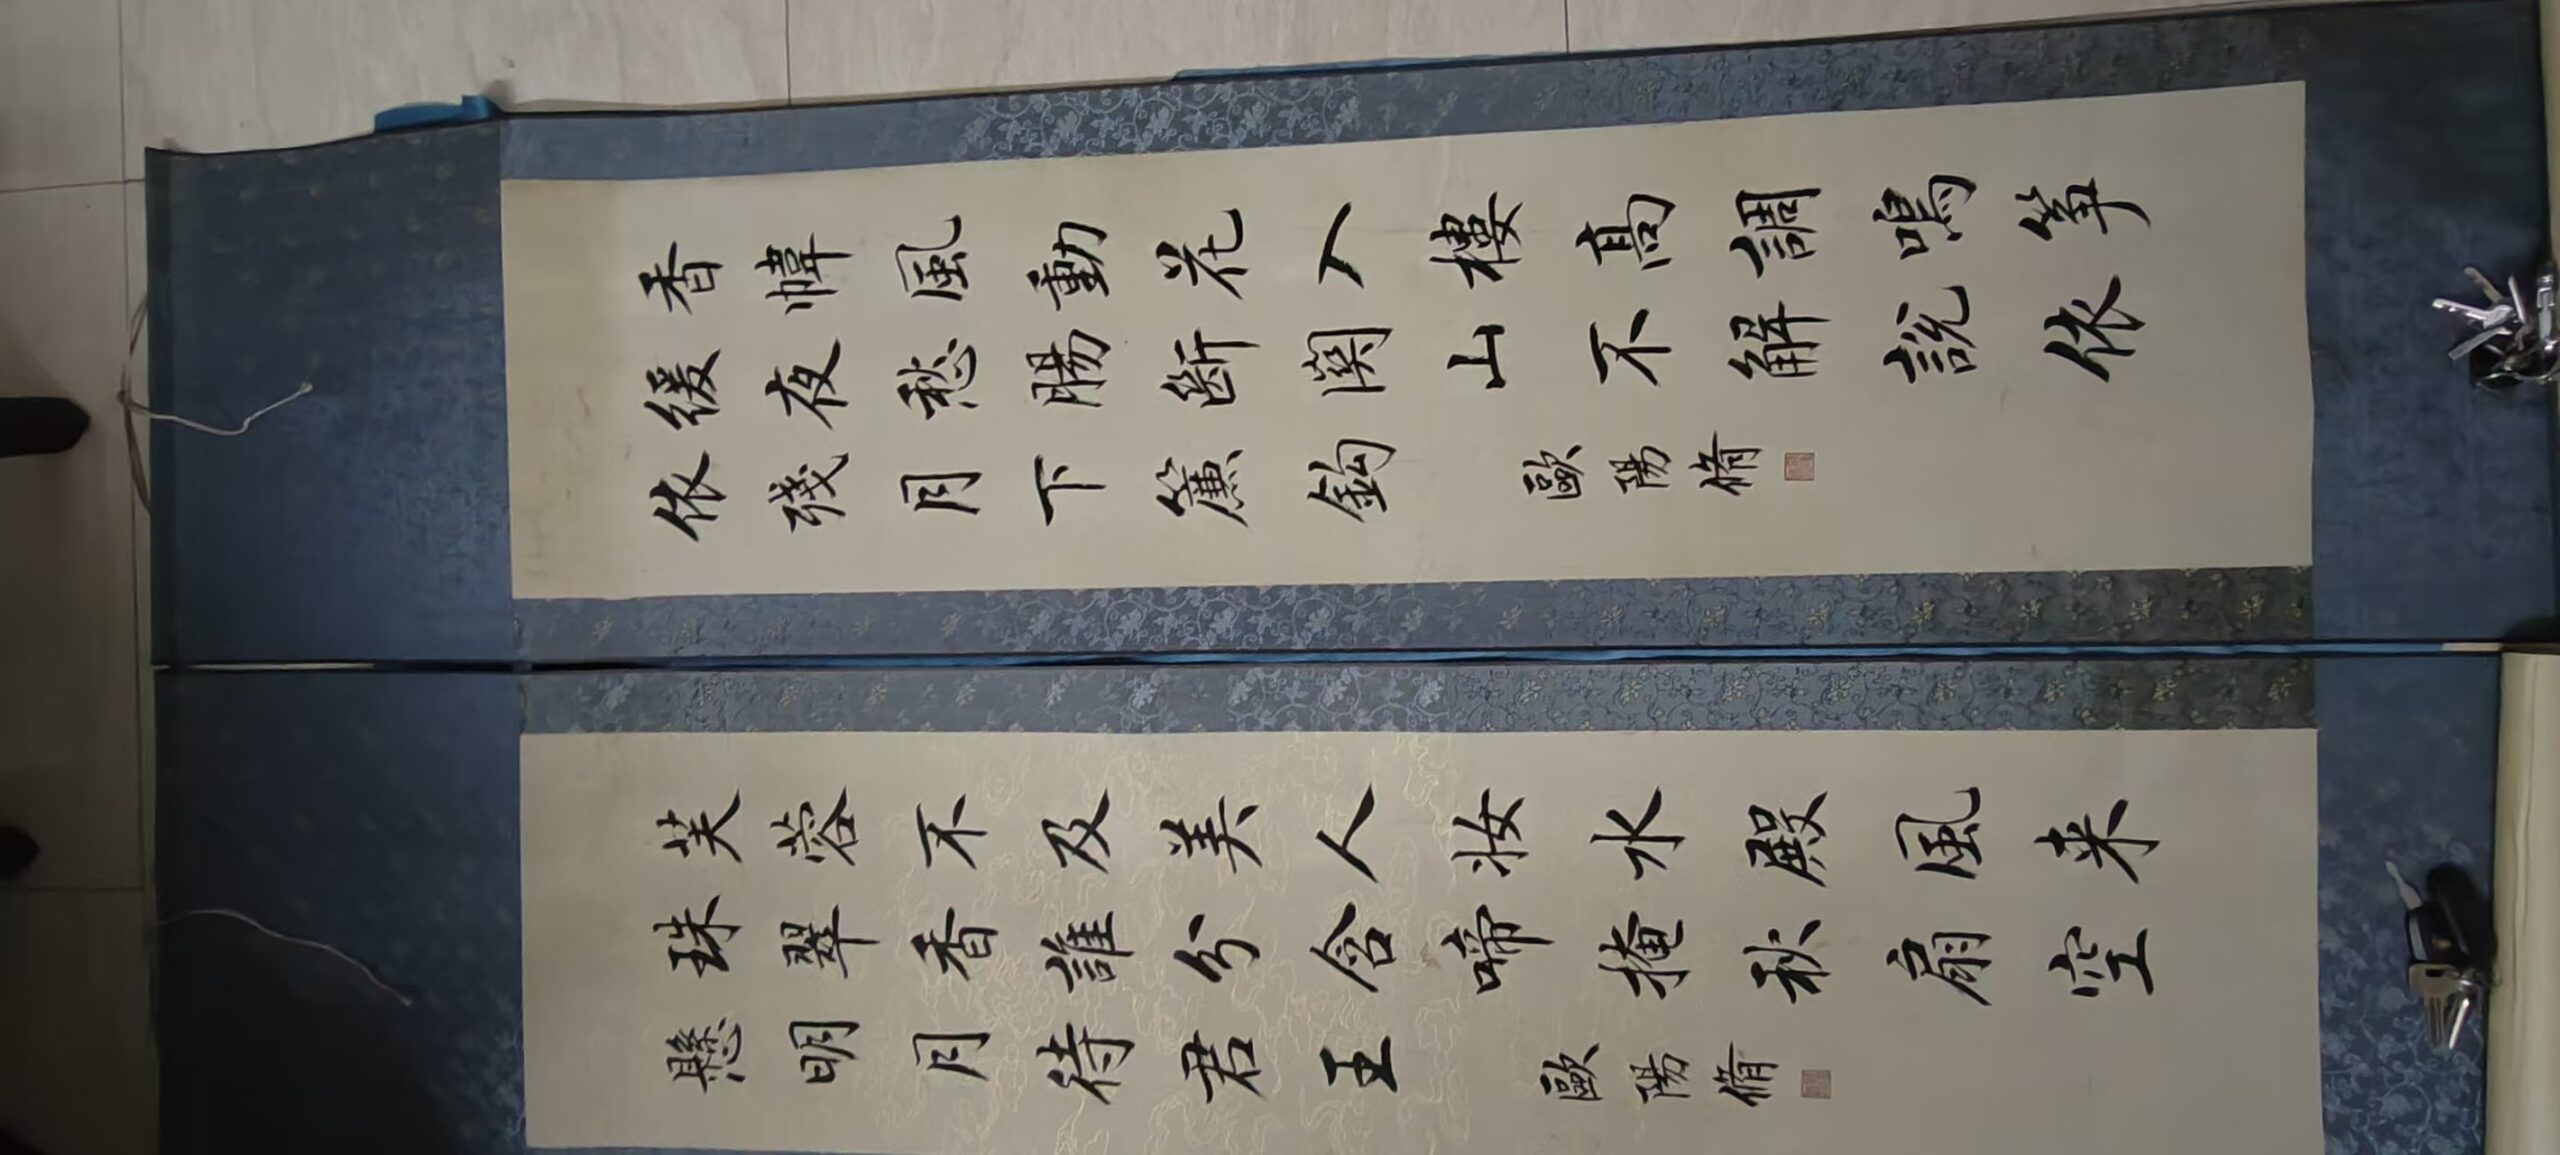 香幃風動花入樓高調鳴筝
緩夜愁腸斷関山不解説依
依殘月下簾鈎
歐陽脩
芙蓉不及美人妝水殿風来
珠翠香誰分含啼掩秋扇空
懸明月待君王
歐陽脩